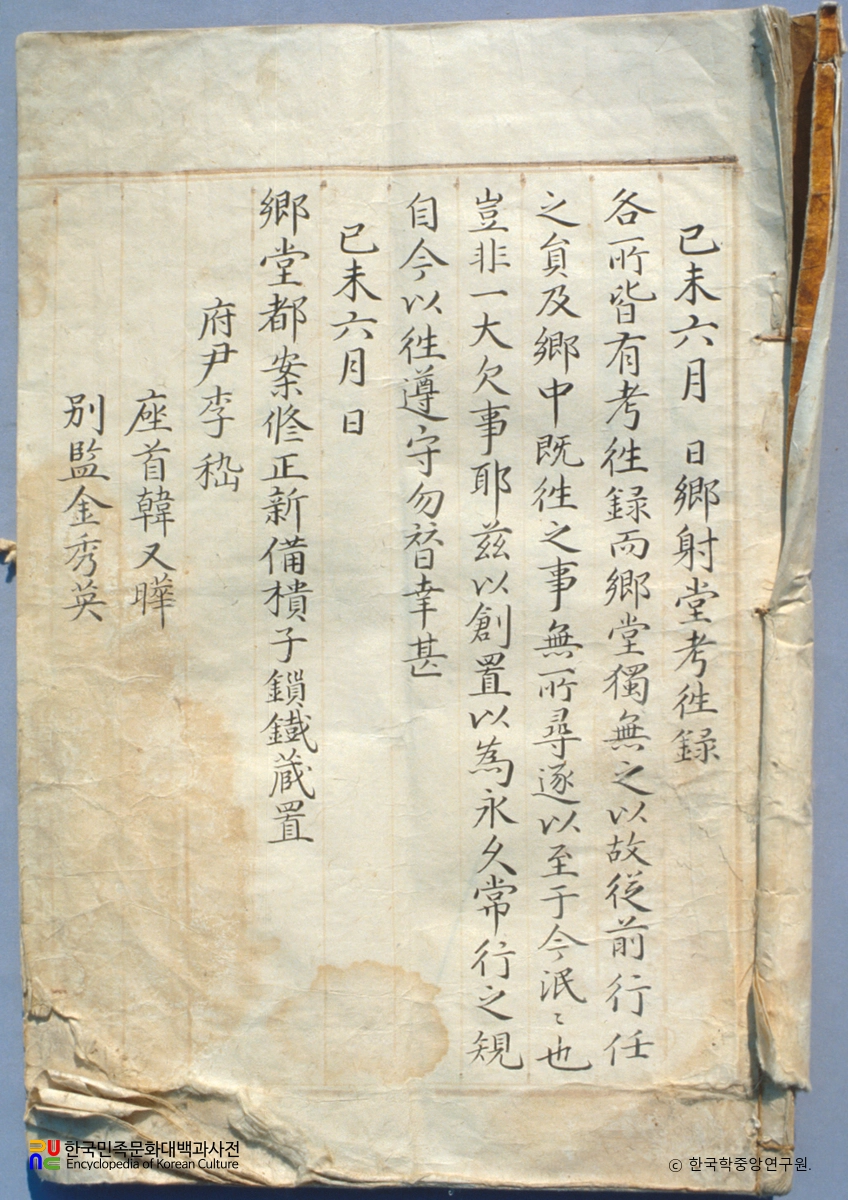 己未六月 日鄕射堂考徃録
各所皆有考徃録而鄕堂獨無之以故從前行任
之負及鄕中既徃之事無所尋逐以至于今泯〻也
豈非一大欠事耶玆以創置以為永久常行之規
自今以徃遵守勿替幸甚
己未六月 日
鄕堂都案修正新備樻子鎖鐵蔵置
府尹李嵇
座首韓又曄
別監金秀英
한국민족문화대백과사전
Encyclopedia of Korean Culture
© 한국학중앙연구원.